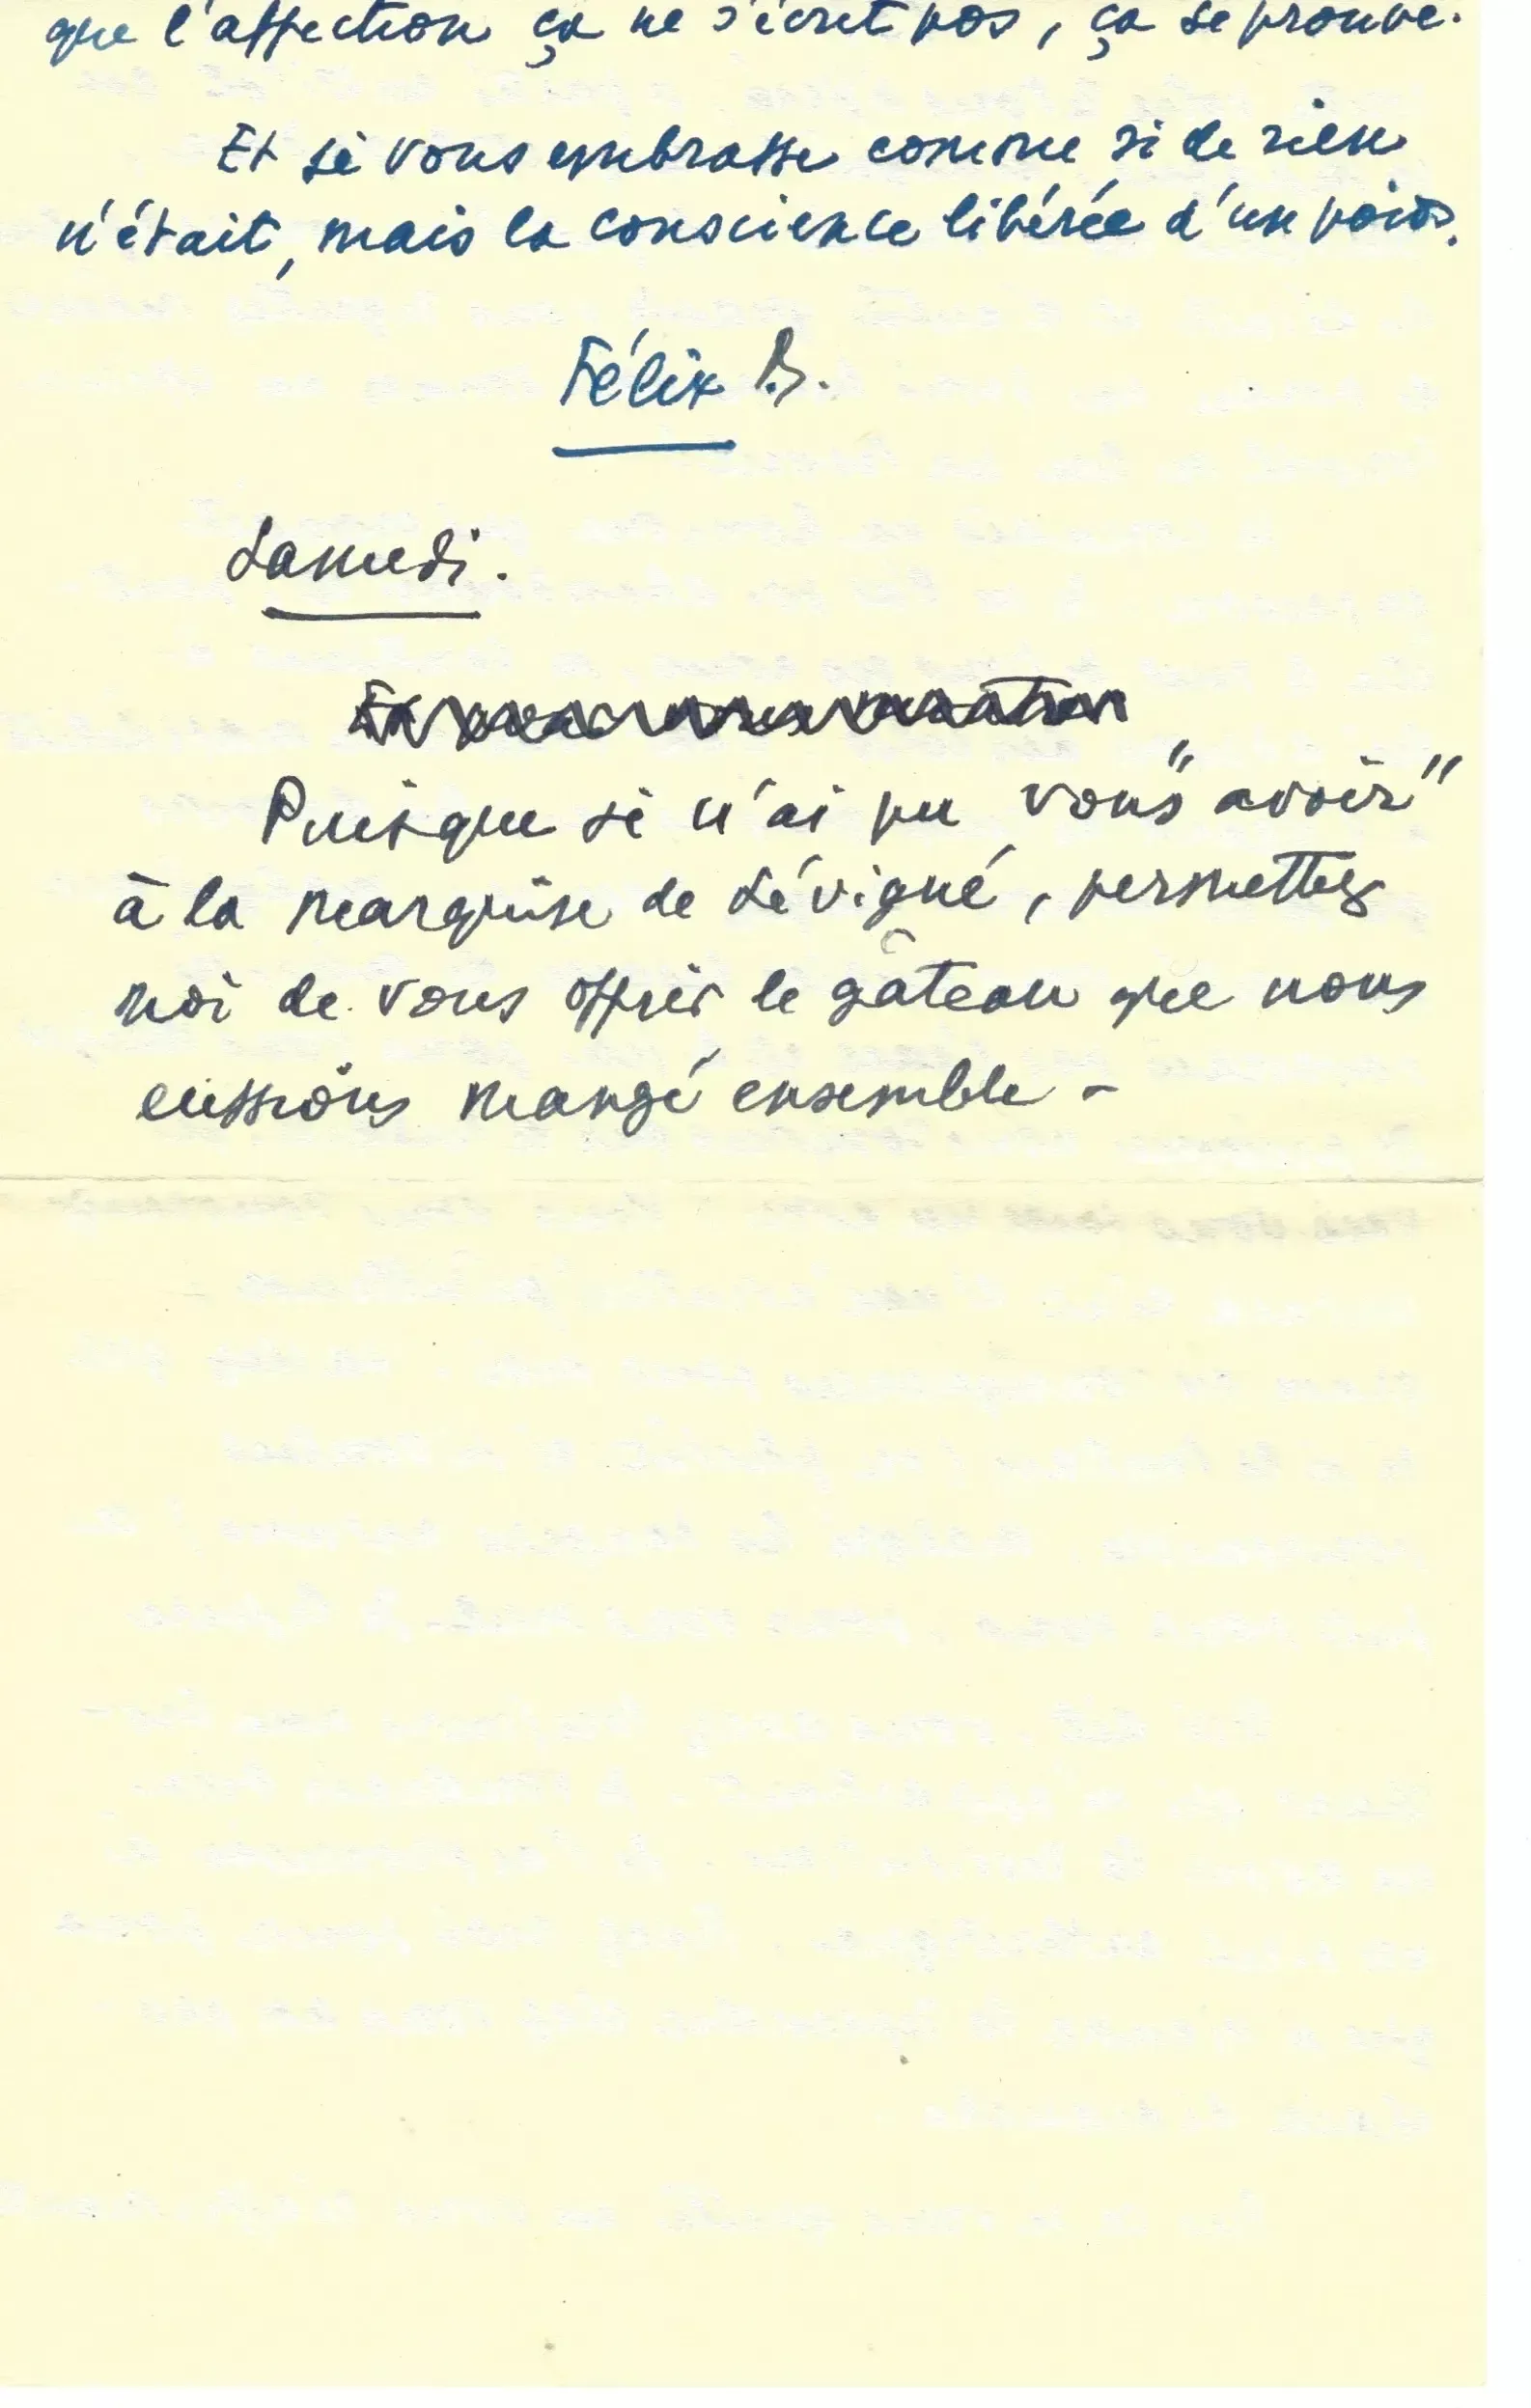 que l'affection ça ne s'écrit pas, ça se prouve.
Et je vous embrasse comme si de rien
n'était, mais la conscience libérée d'un poids.
Félix B.
Samedi.
Puisque je n'ai pu vous "avoir"
à la marquise de Sévigné, permettez
moi de vous offrir le gâteau que nous
eussions mangé ensemble -